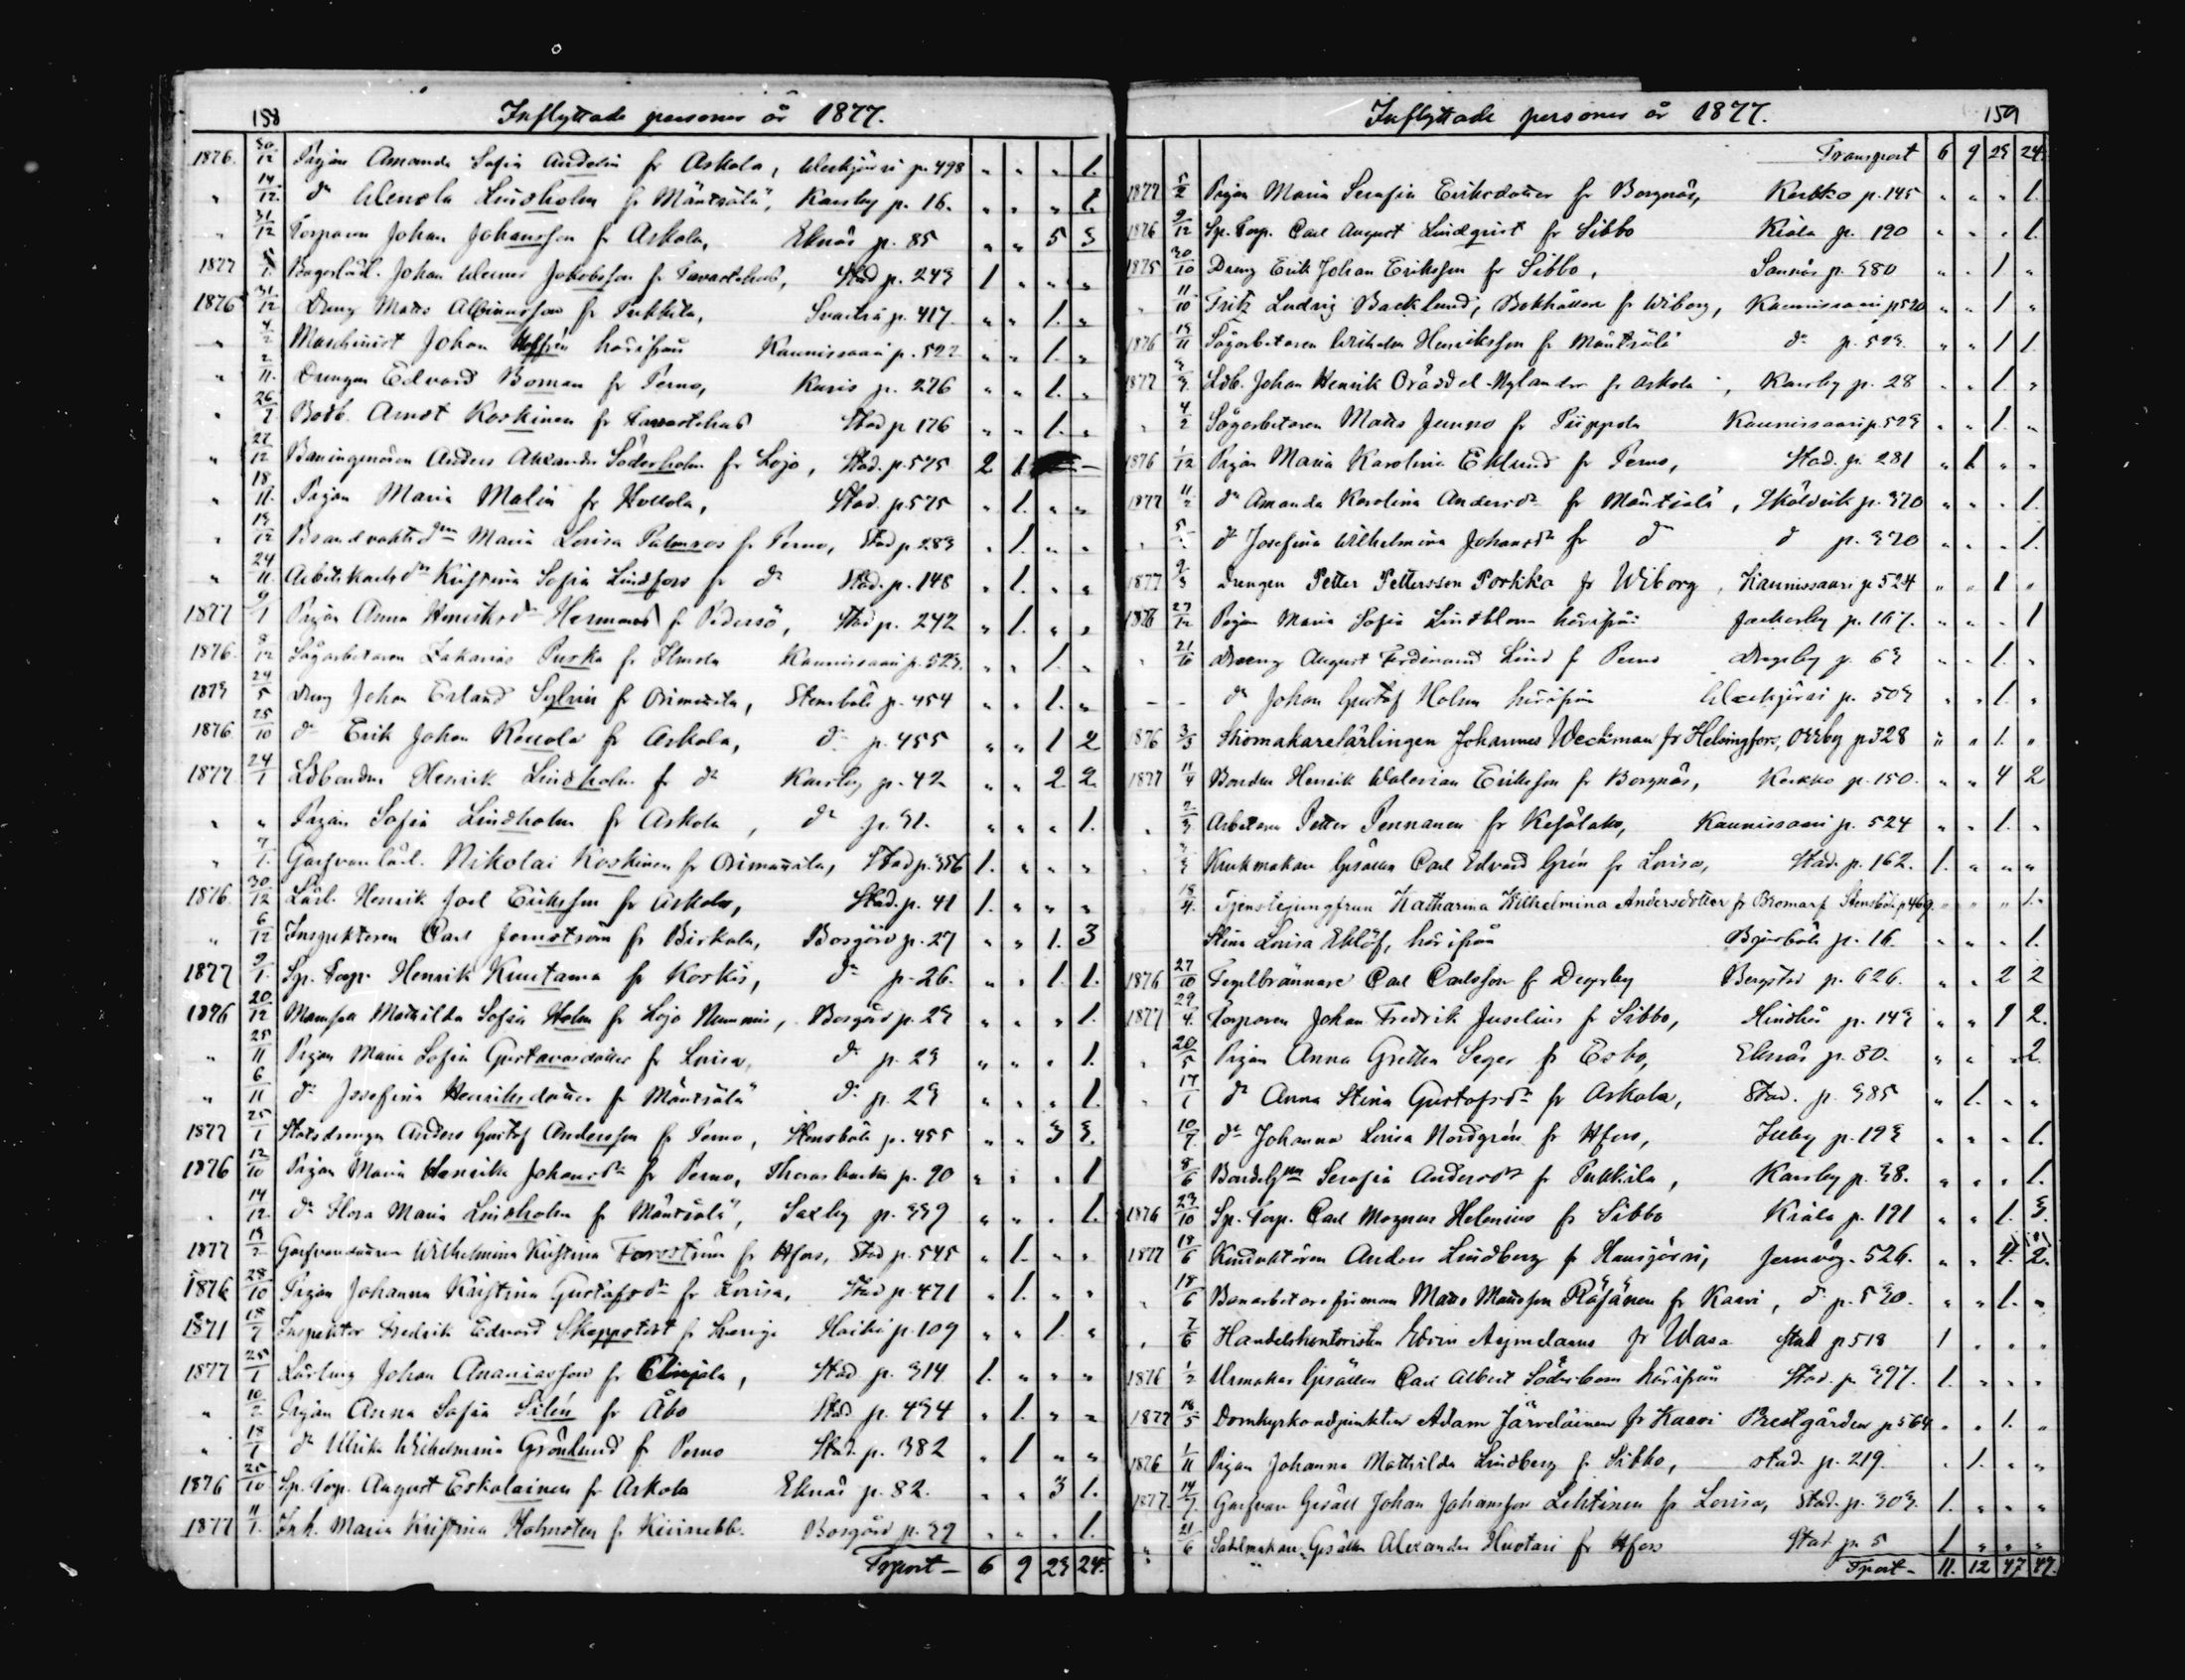 158 Inflyttade personer år 1877.
1876. 30/12 Pigan Amanda Sofia Andelin fr Askola, Werkjärvi p. 498 " " " 1.
" 14/12 do Wendla Lindholm fr Mäntsälä, Karsby p. 16. " " " 1.
" 31/12 Torparen Johan Johansson fr Askola, Eknäs p. 85 " " 5 3
1877 Bagarlärl. Johan Werner Jakobsson fr Tavastehus, Stad p. 243 1 " " "
1876 31/12 Dreng Matts Albinusson fr Pukkila, Svartså p. 417. " " 1. "
" 4/2 Maschinist Johan härifrån Kaunissaari p. 522 " " 1. "
" 2/11. Drengen Edvard Boman fr Perno, Kuris p. 276 " " 1. "
" 26/1 Bodb. Arndt Koskinen fr Tavastehus Stad p 176 " " 1. "
" 27/12 Baningeniören Anders Alexander Söderholm fr Lojo, Stad. p. 575 2 1 —
" 18/11. Pigan Maria Malin fr Hollola, Stad. p. 575 " 1. " "
" 13/12 Brandvakts Maria Lovisa Palmroos fr Perno, Stad p 283 " 1. " "
" 24/11. Arbetskarls Kristina Sofia Lindfors fr do Stad. p. 148 " 1. " "
1877 9/1 Pigan Anna Henriksdr Hermans fr Pedersö, Stad p. 242 " 1. " "
1876. 8/12 Sågarbetaren Zakarias Purka fr Ilmola Kaunissaari p. 523. " " 1. "
1873 24/5 Dreng Johan Erland Sylvin fr Orimattila, Stensböle p. 454 " " 1. "
1876. 25/10 do Erik Johan Rouvola fr Askola, do p. 455 " " 1 2
1877 24/1 Ldbonden Henrik Lindholm fr do Karsby p. 42 " " 2 2.
" " Pigan Sofia Lindholm fr Askola, do p. 31. " " " 1.
" 7/1. Garfvarelärl. Nikolai Koskinen fr Orimattila, Stad p. 356 1. " " "
1876. 30/12 Lärl. Henrik Joel Eriksson fr Askola, Stad. p. 41 1. " " "
" 6/12 Inspektoren Carl Jernström fr Birkala, Borgård p. 27 " " 1. 3
1877 9/1. Sp. Torp. Henrik Kuutama fr Koskis, do p. 26. " " 1. 1.
1876 20/12 Mamsell Mathilda Sofia Holm fr Lojo Nummis, Borgård p. 23 " " " 1.
" 25/11 Pigan Maria Sofia Gustavasdotter fr Lovisa, do p. 23 " " " 1.
" 6/11 do Josefina Henriksdotter fr Mäntsälä do p. 23 " " " 1.
1877 25/1 Statsdrengen Anders Gustaf Andersson fr Perno, Stensböle p. 455 " " 3 3.
1876 12/10 Pigan Maria Henrika Johansdr fr Perno, Thorasbacka p. 90 " " " 1
" 14/12. do Flora Maria Lindholm fr Mäntsälä, Saxby p. 339 " " " 1.
1877 13/2 Garfvaredottren Wilhelmina Kristina Forsström fr Hfors, Stad p. 545 " 1. " "
1876 28/10 Pigan Johanna Kristina Gustafsdr fr Lovisa, Stad p. 471 " 1. " "
1871 18/7 Inspektor Fredrik Edvard Skeppstedt fr Sverige Haiko p. 109 " " 1. "
1877 25/1 Lärling Johan Ananiasson fr Elimjala, Stad p. 314 1. " " "
" 10/2 Pigan Anna Sofia Silén fr Åbo Stad p. 434 " 1. " "
" 18/1. do Ulrika Wilhelmina Grönlund fr Perno Stad. p. 382 " 1 " "
1876 25/10 Sp. Torp. August Eskolainen fr Askola Eknäs p. 82. " " 3 1.
1877 11/1. Inh. Maria Kristina Holmsten fr Borgård p. 32 " " " 1.
Tsport — 6 9 23 24.
Inflyttade personer år 1877. 159
Transport 6 9 23 24.
1877 5/2 Pigan Maria Serafia Eriksdotter fr Borgnäs, Kerkko p. 145 " " " 1.
1876 9/12 Sp. Torp. Carl August Lindqvist fr Sibbo Kiala p. 190 " " " 1.
1875 30/10 Dreng Erik Johan Eriksson fr Sibbo, Sannäs p. 380 " " 1 "
" 11/10 Fritz Ludvig Backlund, Bokhållare fr Wiborg, Kaunissaari p 520 " " 1 "
1876 13/11 Sågarbetaren Wilhelm Henriksson fr Mäntsälä do p. 523. " " 1 1.
1877 3/3 Ldb. Johan Henrik Nylander fr Askola, Karsby p. 28 " " 1. "
" 4/2 Sågarbetaren Matts Junno fr Piippola Kaunissaari p. 523 " " 1. "
1876 1/12 Pigan Maria Karolina Eklund fr Perno, Stad. p. 281 " 1. " "
1877 11/2 do Amanda Karolina Andersdr fr Mäntsälä, Sköldvik p. 370 " " " 1.
" do Josefina Wilhelmina Johansdr fr do do p. 370 " " " 1.
1877 2/3 Drengen Petter Pettersson Porkka fr Wiborg, Kaunissaari p 524 " " 1 "
1876 27/12 Pigan Maria Sofia Lindblom härifrån Jackarby p. 167. " " " 1
" 21/10 Dreng August Ferdinand Lind fr Perno Drägsby p. 63 " " 1. "
— do Johan Gustaf Holm härifrån Werkjärvi p. 503 " " 1. "
1876 3/3 Skomakarelärlingen Johannes Weckman fr Helsingfors, Orrby p 328 " " 1. "
1877 11/4 Bonden Henrik Walerian Eriksson fr Borgnäs, Kerkko p. 150. " " 4 2
" 2/3 Arbetaren Petter Pennanen fr Kesälaks, Kaunissaari p. 524 " " 1. "
" 3/3 Krukmakare Gesällen Carl Edvard Grén fr Lovisa, Stad. p. 162. 1. " " "
" 18/4. Tjenstejungfrun Katharina Wilhelmina Andersdotter fr Bromarf Stensböle p 469. " " " 1.
Stina Lovisa Eklöf, härifrån Bjurböle p. 16. " " " 1.
1876 27/10 Tegelbrännare Carl Carlsson fr Degerby Bergstad p. 626. " " 2 2
1877 29/4. Torparen Johan Fredrik Juselius fr Sibbo, Hindhår p. 143 " " 9 2.
" 20/5 Pigan Anna Gretha Seger fr Esbo, Eknäs p. 80. " " " 2.
" 17/1 do Anna Stina Gustafsdr fr Askola, Stad. p. 385 " 1. " "
10/7. do Johanna Lovisa Nordgrén fr Hfors, Illby p. 193 " " " 1.
8/6 Serafia Andersdr fr Pukkila, Karsby p. 38. " " " 1.
1876 23/10 Sp. Torp. Carl Magnus Helenius fr Sibbo Kiala p. 191 " " 1. 3.
1877 18/6 Konduktören Anders Lindberg fr Hausjärvi, Jernväg. 526. " " 4. 2.
" 18/6 Banarbetareförman Matts Mattsson Räsänen fr Kaavi, do p. 530. " " 1. "
" 7/6 Handelskontoristen Edvin Aymelaeus fr Wasa stad p 518 1 " " "
1876 1/2 Urmakar Gesällen Carl Albert Söderbom härifrån Stad. p. 397. 1. " " "
1877 18/5 Domkyrkoadjunkten Adam Järveläinen fr Kaavi Prestgården p 564 " " 1. "
1876 1/11 Pigan Johanna Mathilda Lindberg fr Sibbo, stad. p. 219. " 1. " "
1877. 14/7 Garfvare Gesäll Johan Johansson Lehtinen fr Lovisa, Stad. p. 303. 1. " " "
" 21/6 Sadelmakare Gesällen Alexander Huotari fr Hfors Stad p. 5 1 " " "
Tsport - 11. 12 47 47.